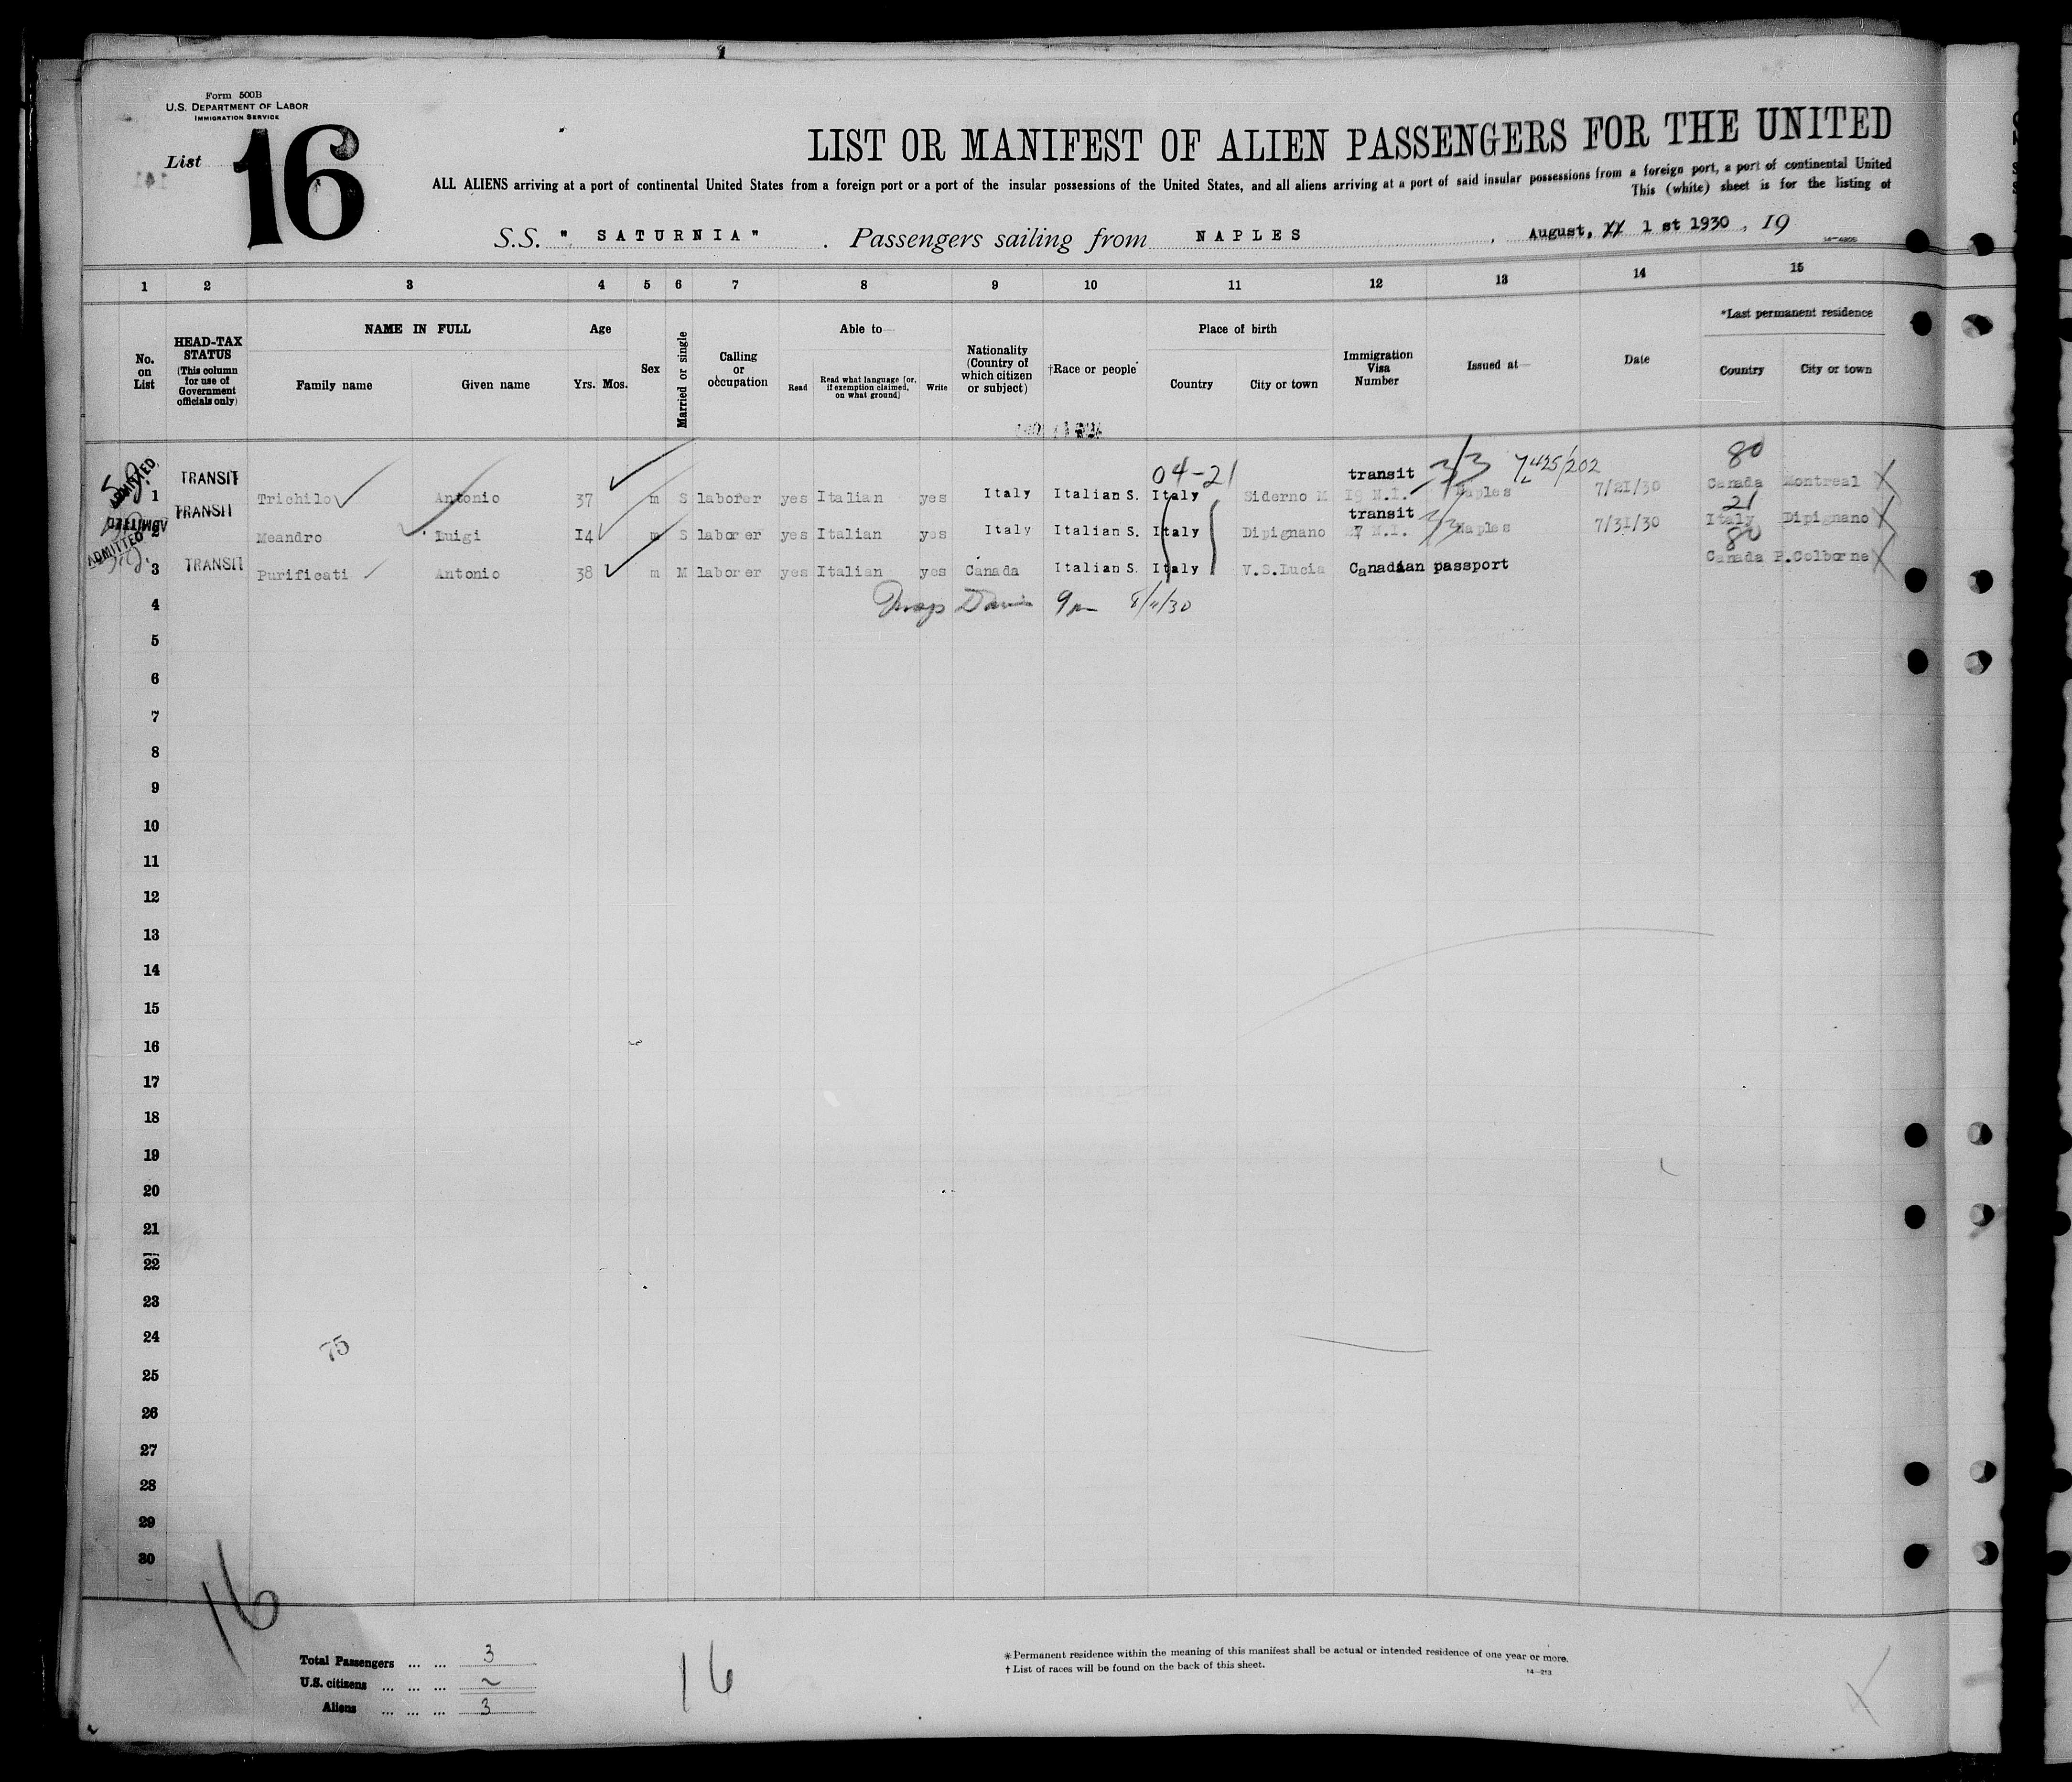 Form 500B
U.S. DEPARTMENT OF LABOR
IMMIGRATION SERVICE
List 16
LIST OR MANIFEST OF ALIEN PASSENGERS FOR THE UNITED
ALL ALIENS arriving at a port of continental United States from a foreign port or a port of the insular possessions of the United States, and all aliens arriving at a port of said insular possessions from a foreign port, a port of continental United
This (white) sheet is for the listing of
S.S. " SATURNIA " . Passengers sailing from NAPLES , August, 1 st 1930 , 19
1 2 3 4 5 6 7 8 9 10 11 12 13 14 15
No. on List
HEAD-TAX STATUS (This column for use of Government officials only)
NAME IN FULL
Family name Given name
Age
Yrs. Mos.
Sex
Married or single
Calling or occupation
Able to—
Read Read what language [or, if exemption claimed, on what ground] Write
Nationality (Country of which citizen or subject)
†Race or people
Place of birth
Country City or town
Immigration Visa Number
Issued at—
Date
*Last permanent residence
Country City or town
04-21 80
ADMITTED 1 TRANSIT Trichilo Antonio 37 m S laborer yes Italian yes Italy Italian S. Italy Siderno M transit 19 N.I. Naples 7/21/30 Canada Montreal X
21
ADMITTED 2 TRANSIT Meandro Luigi 14 m S laborer yes Italian yes Italy Italian S. Italy Dipignano transit N.I. Naples 7/31/30 Italy Dipignano X
80
ADMITTED 3 TRANSIT Purificati Antonio 38 m M laborer yes Italian yes Canada Italian S. Italy V.S.Lucia Canadian passport Canada P.Colborne X
4
5
6
7
8
9
10
11
12
13
14
15
16
17
18
19
20
21
22
23
24
75
25
26
27
28
29
30
16
Total Passengers ... ... 3
U.S. citizens ... ... ... ~
Aliens ... ... ... 3
16
* Permanent residence within the meaning of this manifest shall be actual or intended residence of one year or more.
† List of races will be found on the back of this sheet.
14—213